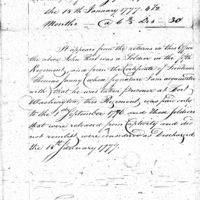 the 16th January 1777. 4 1/2
Months — @ 6 2/3 Drs — 30
It appears from the returns in this Office
the above John Hart was a Soldier in the 5th
Regiment, and from the Certificate of
Thomas whose signature I am acquainted
with, that he was taken prisoner at Fort
Washington, this Regiment, was paid only to
the 1st September 1776 and those soldiers
that were released from Captivity and did
not reinlist were considered as discharged
the 16th January 1777.